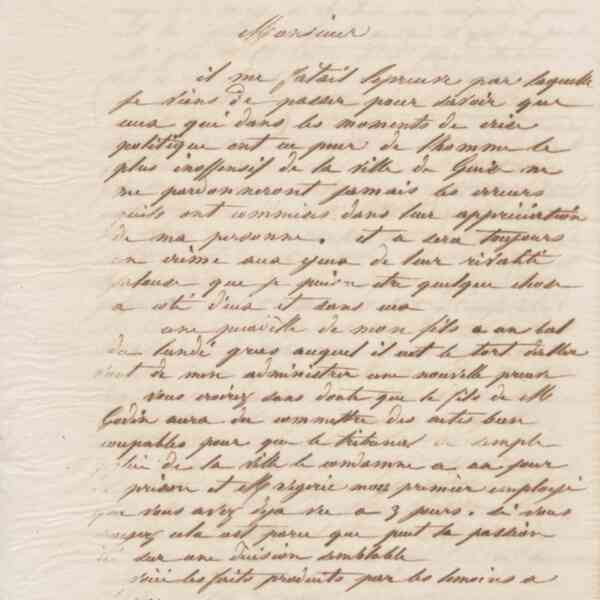 Monsieur
il me fallait l'épreuve par laquelle
je viens de passer pour savoir que
ceux qui dans les moments de crise
politique ont eu peur de l'homme le
plus inoffensif de la ville de Guise ne
me pardonneront jamais les erreurs
qu'ils ont commises dans leur appréciation
de ma personne. et a sera toujours
un crime aux yeux de leur rivalité
jalouse que je puisse etre quelque chose
a coté d'eux et sans eux
une peccadille de mon fils a un bal
du lundi gras auquel il eut le tort d'aller
vient de m'en administrer une nouvelle preuve
vous croirez sans doute que le fils de M
Godin aura du commettre des actes bien
coupables pour que le tribunal de simple
police de la ville le condamne a un jour
de prison et M mon premier employé
que vous avez deja vu a 3 jours. si vous
croyez cela c'est parce que peut la passion
sur une décision semblable
voici les faits produits par les temoins a